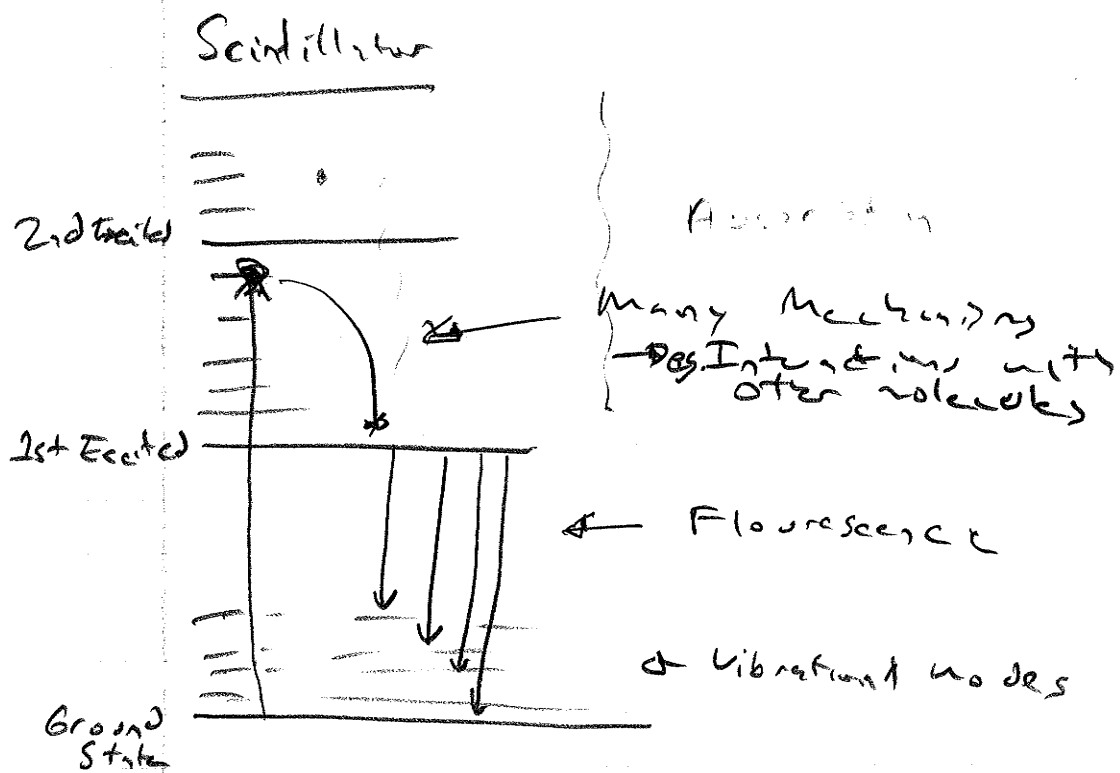 Scintillator
2nd Excited
Many Mechanisms
Interactions with
other molecules
1st Excited
Flourescence
Vibrational modes
Ground
State